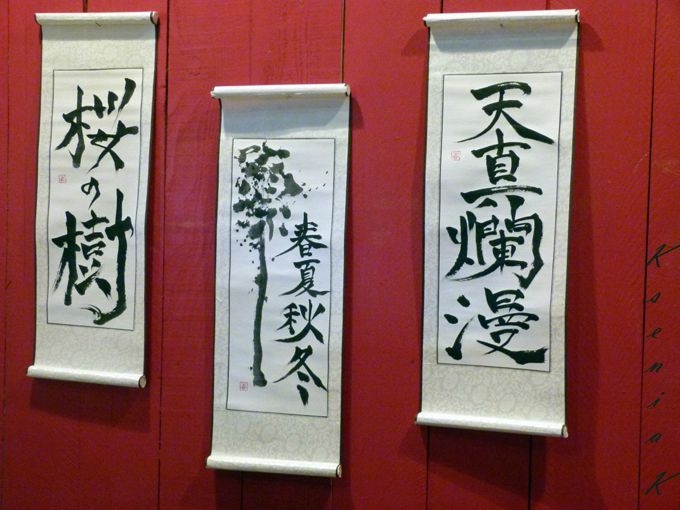 桜の樹
春夏秋冬
天真爛漫
Ksenia K